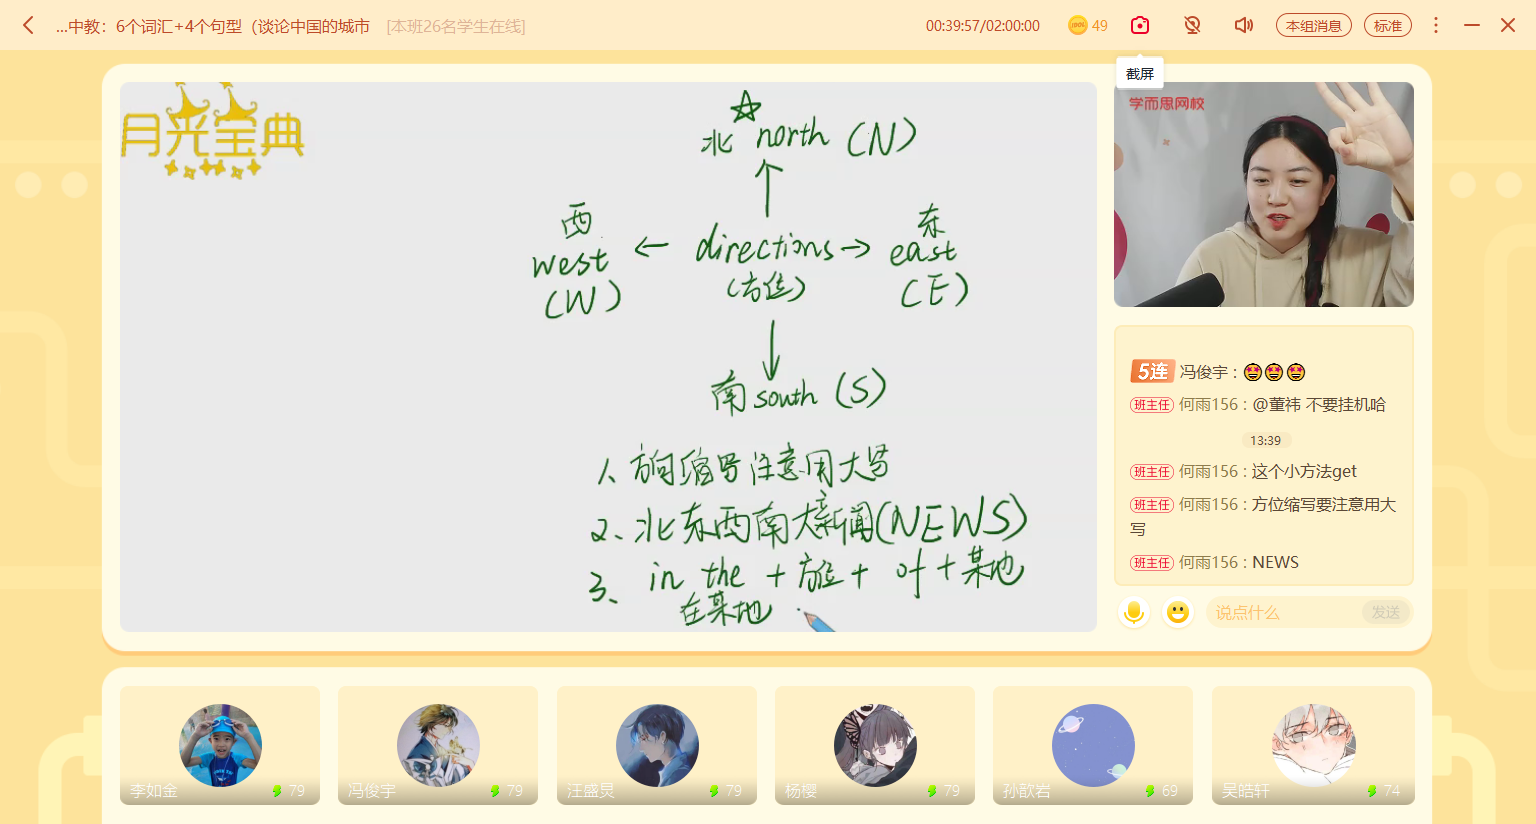 ...中教：6个词汇+4个句型（谈论中国的城市 [本班26名学生在线]
00:39:57/02:00:00 49 本组消息 标准
截屏
月光宝典
学而思网校
北 north (N)
西 东
west ← directions → east
(W) (方位) (E)
南 south (S)
1、方向缩写注意用大写
2、北东西南大新闻(NEWS)
3、in the + 方位 + of + 某地
在某地
5连 冯俊宇：
班主任 何雨156：@董祎 不要挂机哈
13:39
班主任 何雨156：这个小方法get
班主任 何雨156：方位缩写要注意用大
写
班主任 何雨156：NEWS
说点什么 发送
李如金 79 冯俊宇 79 汪盛炅 79 杨樱 79 孙歆岩 69 吴皓轩 74